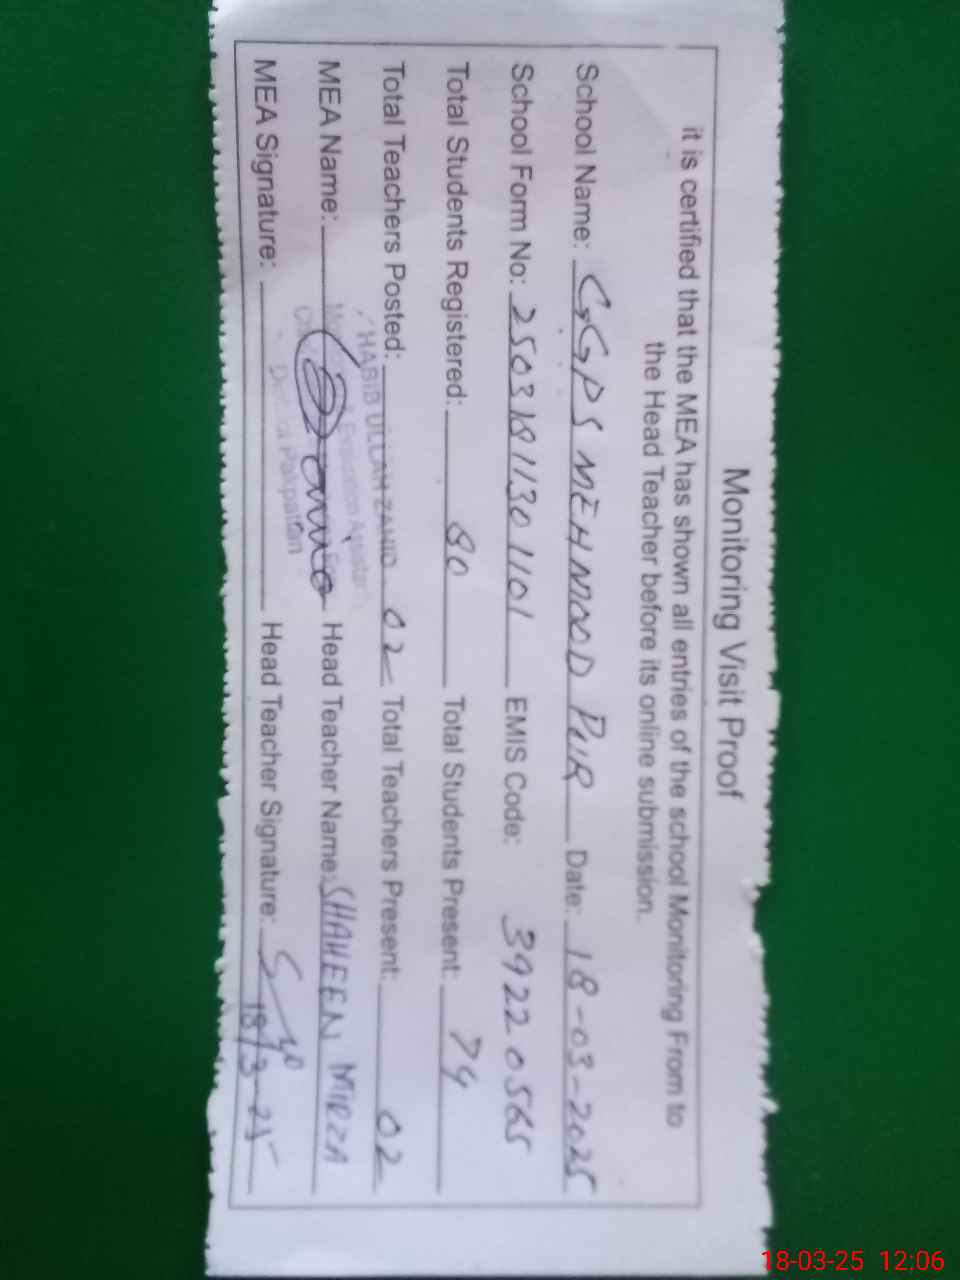 Monitoring Visit Proof
it is certified that the MEA has shown all entries of the school Monitoring From to
the Head Teacher before its online submission.
School Name: GGPS MEHMOOD PUR Date: 18-03-2025
School Form No: 25031811301101 EMIS Code: 39220565
Total Students Registered: 80 Total Students Present: 74
Total Teachers Posted: 02 Total Teachers Present: 02
HABIB ULLAH ZAHID
MEA Name: Head Teacher Name: SHAHEEN MIRZA
Pakpattan
MEA Signature: Head Teacher Signature: 18/3-25
18-03-25 12:06